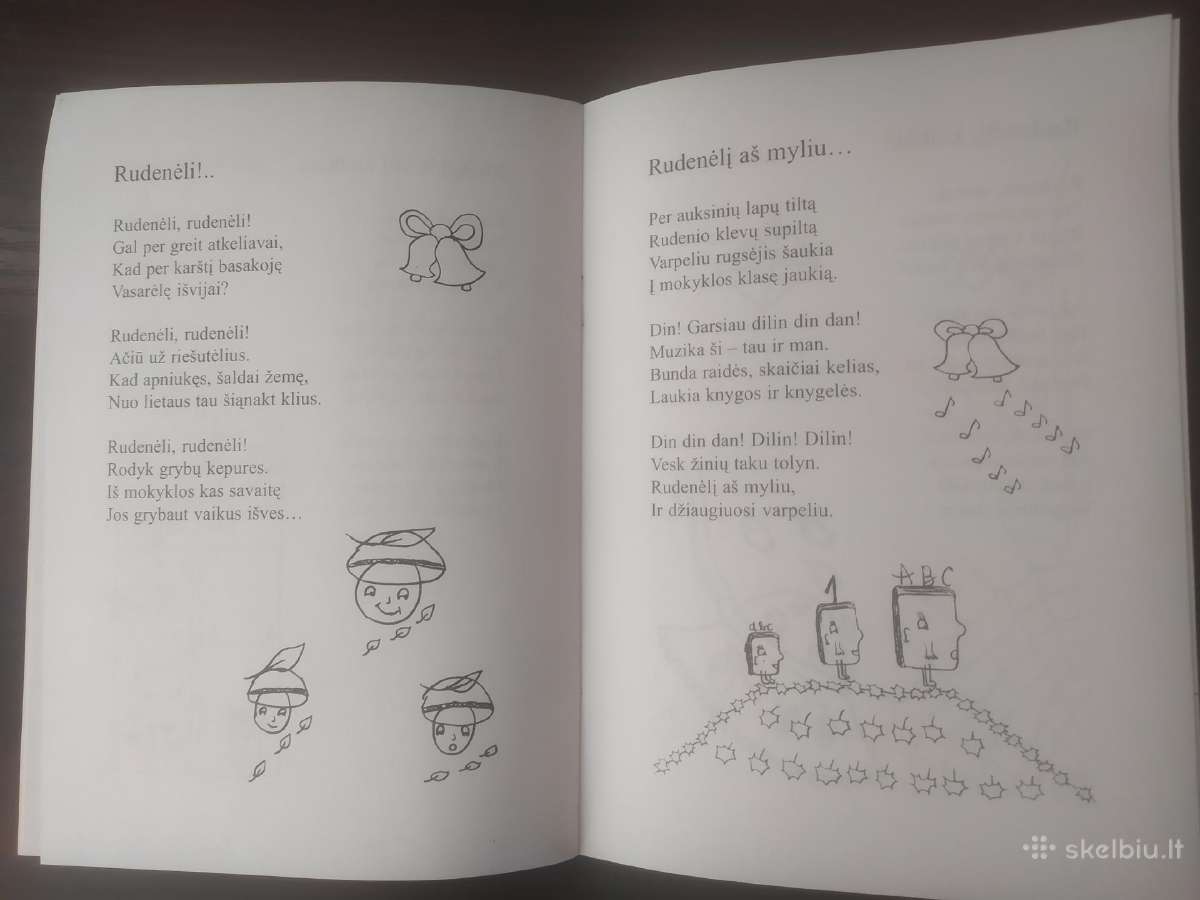 Rudenėli!..
Rudenėli, rudenėli!
Gal per greit atkeliavai,
Kad per karštį basakoję
Vasarėlę išvijai?
Rudenėli, rudenėli!
Ačiū už riešutėlius.
Kad apniukęs, šaldai žemę,
Nuo lietaus tau šiąnakt klius.
Rudenėli, rudenėli!
Rodyk grybų kepures.
Iš mokyklos kas savaitę
Jos grybaut vaikus išves…
Rudenėlį aš myliu…
Per auksinių lapų tiltą
Rudenio klevų supiltą
Varpeliu rugsėjis šaukia
Į mokyklos klasę jaukią.
Din! Garsiau dilin din dan!
Muzika ši – tau ir man.
Bunda raidės, skaičiai kelias,
Laukia knygos ir knygelės.
Din din dan! Dilin! Dilin!
Vesk žinių taku tolyn.
Rudenėlį aš myliu,
Ir džiaugiuosi varpeliu.
abc
1
ABC
skelbiu.lt